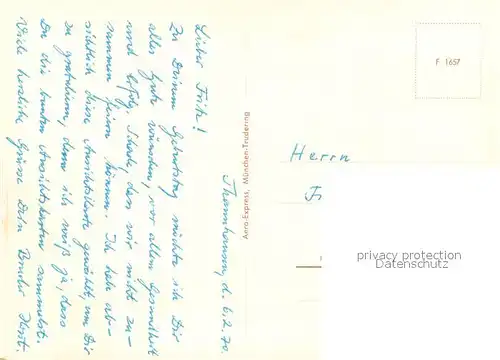 Thannhausen, d. 6.2.70.
Lieber Fritz!
Zu Deinem Geburtstag möchte ich Dir
alles Gute wünschen, vor allem Gesundheit
und Erfolg. Schade, dass wir nicht zu-
sammen feiern können. Ich habe ab-
sichtlich diese Ansichtskarte gewählt, um Dir
zu gratulieren, denn ich weiß ja, dass
Du die bunten Ansichtskarten sammelst.
Viele herzliche Grüsse Dein Bruder Horst.
Aero-Express, München-Trudering
F 1657
Herrn
F
privacy protection
Datenschutz